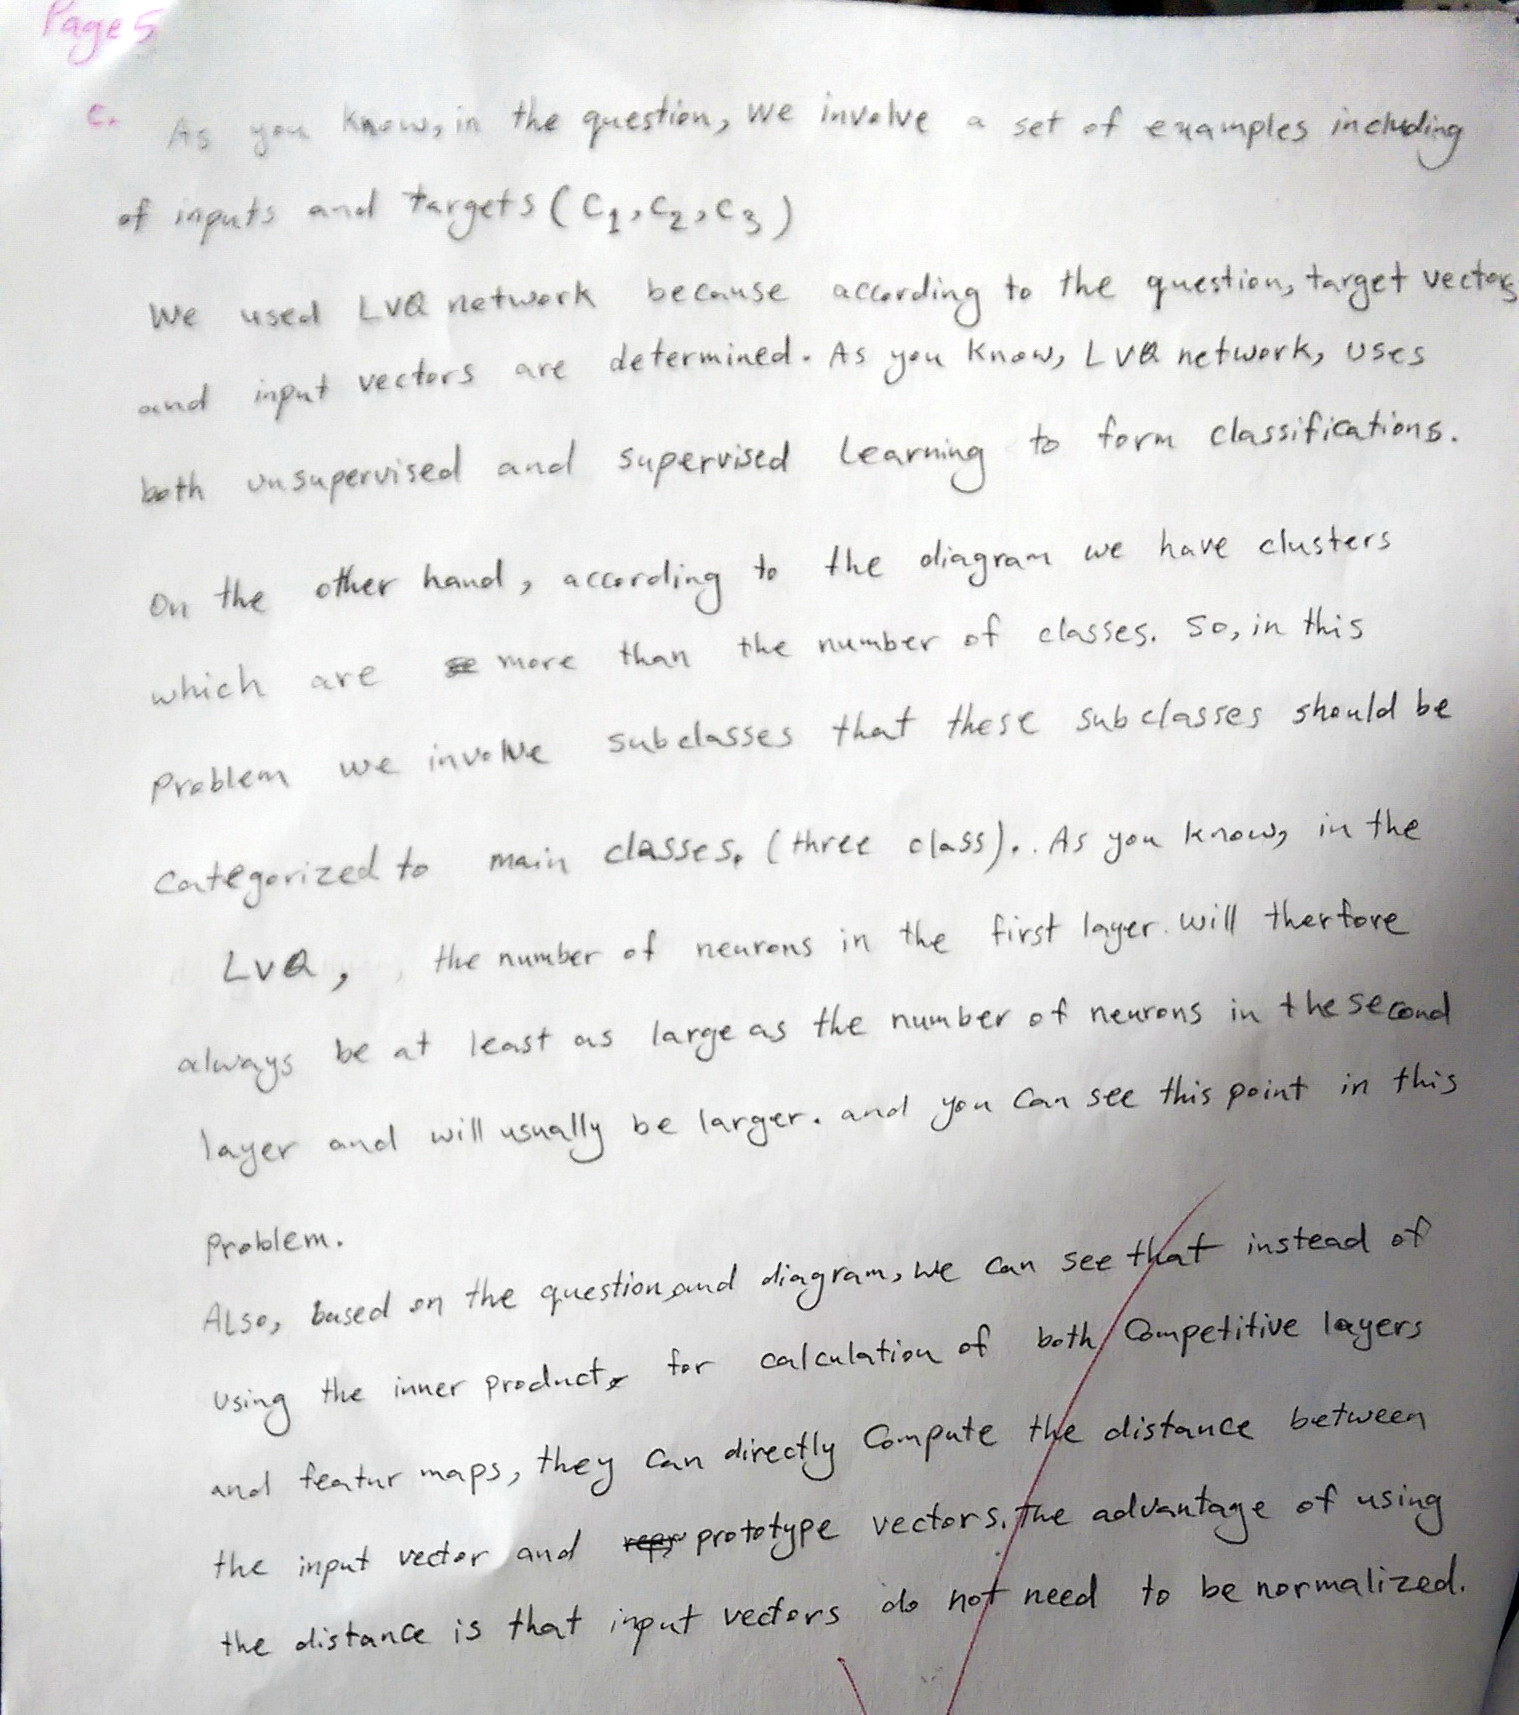 Page 5
c. As you know, in the question, we involve a set of examples including
of inputs and targets (C1, C2, C3)
We used LVQ network because according to the question, target vectors
and input vectors are determined. As you know, LVQ network, uses
both unsupervised and supervised learning to form classifications.
On the other hand, according to the diagram we have clusters
which are more than the number of classes. So, in this
problem we involve subclasses that these subclasses should be
categorized to main classes. (three class). As you know, in the
LVQ, the number of neurons in the first layer will therfore
always be at least as large as the number of neurons in the second
layer and will usually be larger. and you can see this point in this
problem.
Also, based on the question, and diagram, we can see that instead of
using the inner product, for calculation of both Competitive layers
and featur maps, they can directly compute the distance between
the input vector and prototype vectors. The advantage of using
the distance is that input vectors do not need to be normalized.